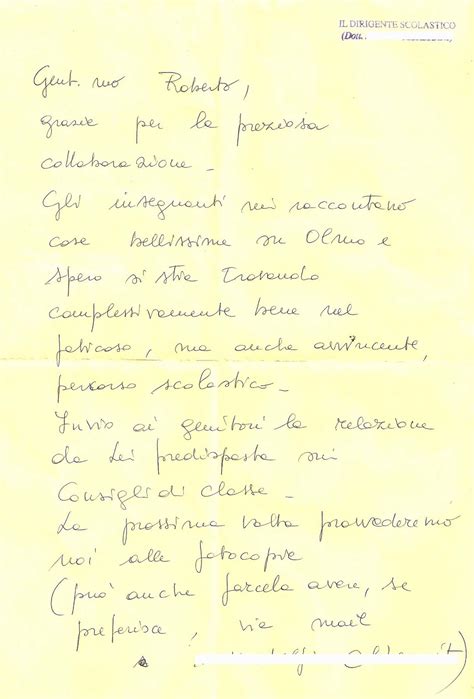 IL DIRIGENTE SCOLASTICO
(Dott.
Gent.mo Roberto,
grazie per la preziosa
collaborazione -
Gli insegnanti mi raccontano
cose bellissime su Olmo e
spero si stia trovando
complessivamente bene nel
faticoso, ma anche avvincente,
percorso scolastico -
Invio ai genitori la relazione
da Lei predisposta sui
Consigli di classe -
La prossima volta provvederemo
noi alle fotocopie
(può anche farcela avere, se
preferisce, via mail